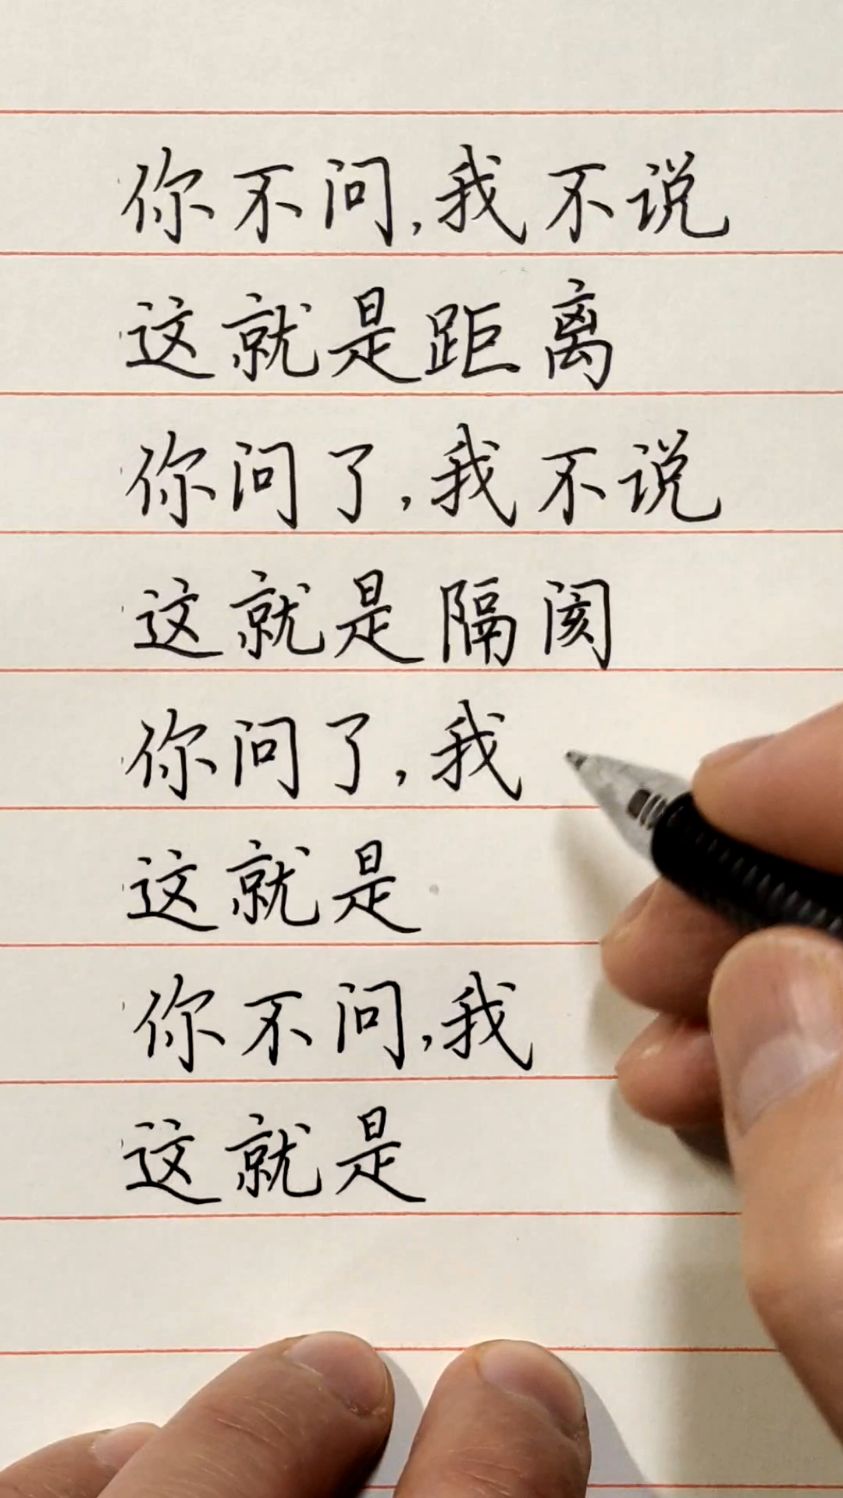 你不问,我不说
这就是距离
你问了,我不说
这就是隔阂
你问了,我
这就是
你不问,我
这就是